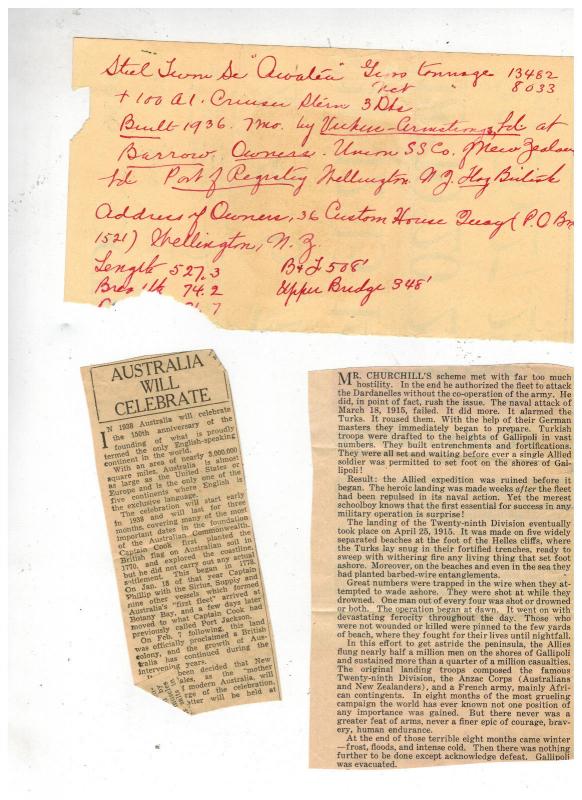 Steel Twin Sc "Awatea" Gross tonnage 13482
Net " 8033
+ 100 A1. Cruiser Stern 3 Dks
Built 1936. 7mo. by Vickers-Armstrongs, Ltd at
Barrow. Owners. Union SS Co. of New Zealan
Ltd Port of Registry Wellington N.Z. Flag British
Address of Owners, 36 Custom House Quay (P.O. Box
1521) Wellington, N.Z.
Length 527.3 B & F 508'
74.2 Upper Bridge 348'
AUSTRALIA
WILL
CELEBRATE
IN 1938 Australia will celebrate
the 150th anniversary of the
founding of what is proudly
termed the only English-speaking
continent in the world.
With an area of nearly 3,000,000
square miles, Australia is almost
as large as the United States or
Europe and is the only one of the
five continents where English is
the exclusive language.
The celebration will start early
in 1938 and will last for three
months, covering many of the most
important dates in the foundation
of the Australian Commonwealth.
Captain Cook first planted the
British flag on Australian soil in
1770, and explored the coastline,
but he did not carry out any actual
settlement. This began in 1778.
On Jan. 18 of that year Captain
Phillip with the Sirius, Supply and
nine other vessels which formed
Australia's "first fleet" arrived at
Botany Bay, and a few days later
moved to what Captain Cook had
previously called Port Jackson.
On Feb. 7 following, this land
was officially proclaimed a British
colony, and the growth of Aus-
tralia has continued during the
intervening years.
been decided that New
ales, as the mother
of modern Australia, will
rge of the celebration.
tter will be held at
MR. CHURCHILL'S scheme met with far too much
hostility. In the end he authorized the fleet to attack
the Dardanelles without the co-operation of the army. He
did, in point of fact, rush the issue. The naval attack of
March 18, 1915, failed. It did more. It alarmed the
Turks. It roused them. With the help of their German
masters they immediately began to prepare. Turkish
troops were drafted to the heights of Gallipoli in vast
numbers. They built entrenchments and fortifications.
They were all set and waiting before ever a single Allied
soldier was permitted to set foot on the shores of Gal-
lipoli!
Result: the Allied expedition was ruined before it
began. The heroic landing was made weeks after the fleet
had been repulsed in its naval action. Yet the merest
schoolboy knows that the first essential for success in any
military operation is surprise!
The landing of the Twenty-ninth Division eventually
took place on April 25, 1915. It was made on five widely
separated beaches at the foot of the Helles cliffs, where
the Turks lay snug in their fortified trenches, ready to
sweep with withering fire any living thing that set foot
ashore. Moreover, on the beaches and even in the sea they
had planted barbed-wire entanglements.
Great numbers were trapped in the wire when they at-
tempted to wade ashore. They were shot at while they
drowned. One man out of every four was shot or drowned
or both. The operation began at dawn. It went on with
devastating ferocity throughout the day. Those who
were not wounded or killed were pinned to the few yards
of beach, where they fought for their lives until nightfall.
In this effort to get astride the peninsula, the Allies
flung nearly half a million men on the shores of Gallipoli
and sustained more than a quarter of a million casualties.
The original landing troops composed the famous
Twenty-ninth Division, the Anzac Corps (Australians
and New Zealanders), and a French army, mainly Afri-
can contingents. In eight months of the most grueling
campaign the world has ever known not one position of
any importance was gained. But there never was a
greater feat of arms, never a finer epic of courage, brav-
ery, human endurance.
At the end of those terrible eight months came winter
—frost, floods, and intense cold. Then there was nothing
further to be done except acknowledge defeat. Gallipoli
was evacuated.